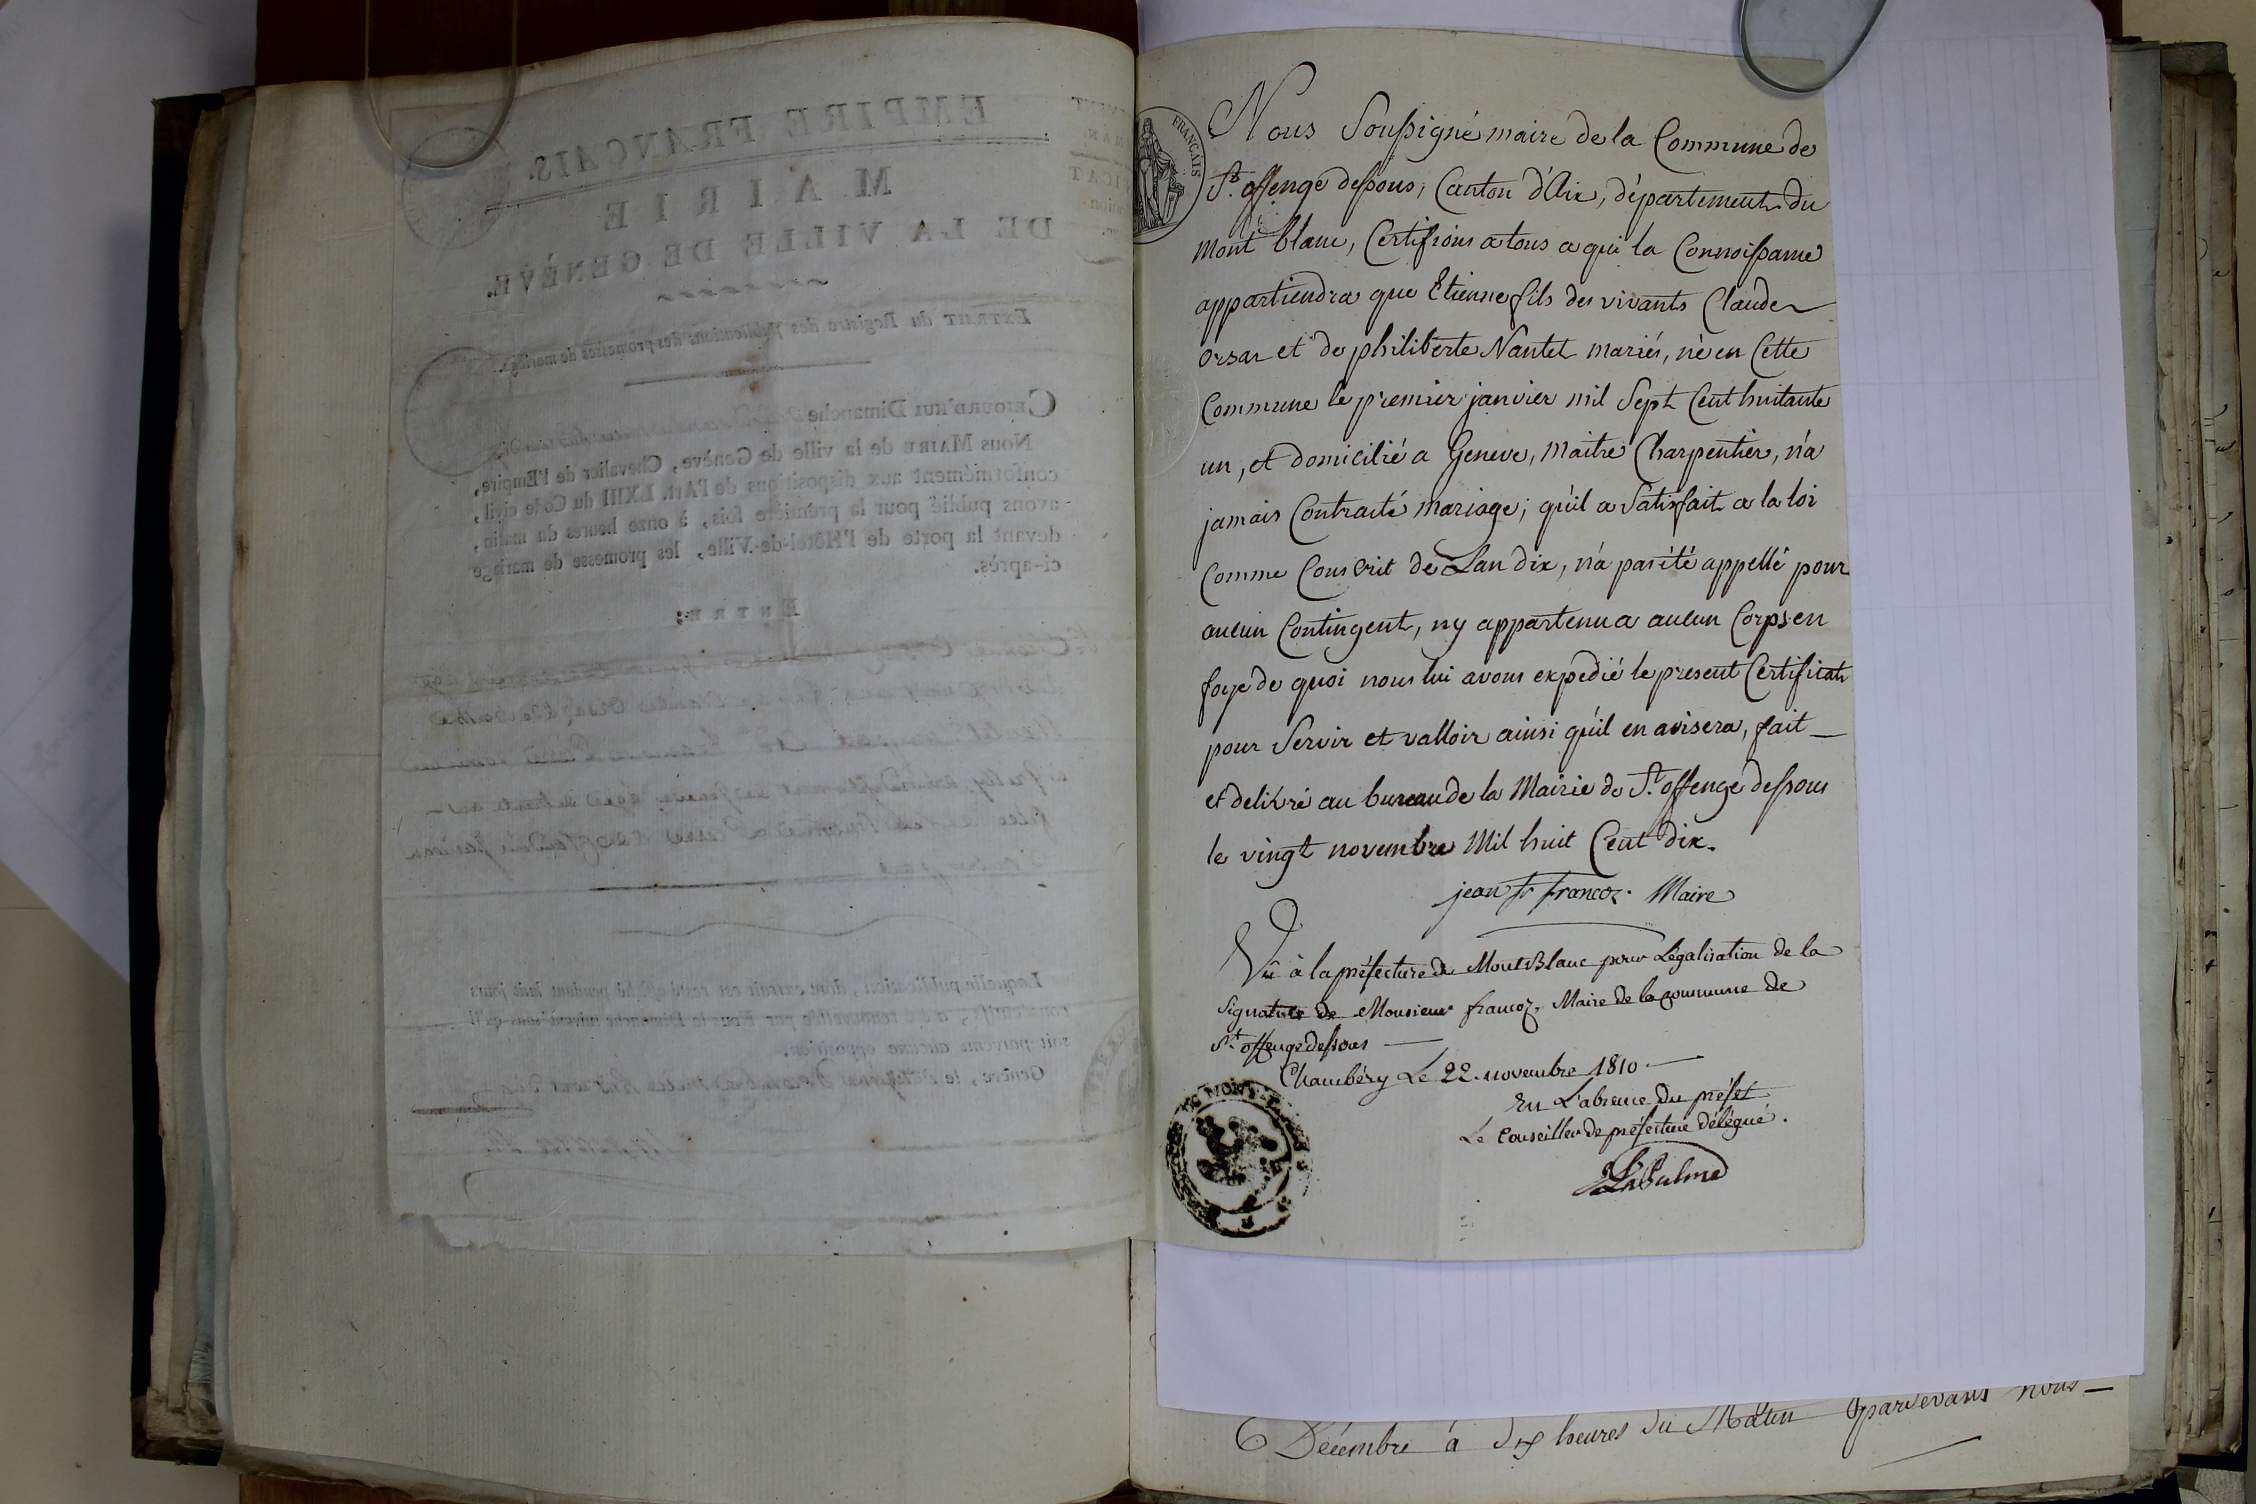 EMPIRE FRANÇAIS.
MAIRIE
DE LA VILLE DE GENÈVE.
EXTRAIT du Registre des Publications des promesses de mariage.
CEJOURD'HUI Dimanche
Nous MAIRE de la ville de Genève, Chevalier de l'Empire,
conformément aux dispositions de l'Art. LXIII du Code civil,
avons publié pour la première fois, à onze heures du matin,
devant la porte de l'Hôtel-de-Ville, les promesse de mariage
ci-après.
ENTRE:
Laquelle publication, dont extrait est resté affiché pendant huit jours
consécutifs, a été renouvelée par Nous le Dimanche suivant sans qu'il
soit parvenu aucune opposition.
Genève, le
FRANÇAIS
Nous Soussigné maire de la Commune de
St. offenge dessous, Canton d'Aix, département du
mont blanc, Certifions a tous a qui la Connoissance
appartiendra que Etienne fils des vivants Claude
orsat et de philiberte Nantet mariés, né en Cette
Commune le premier janvier mil Sept Cent huitante
un, et domicilié a Geneve, maitre Charpentier, n'a
jamais Contracté mariage; qu'il a Satisfait a la loi
comme Conscrit de Lan dix, n'a pas été appellé pour
aucun Contingent, ny appartenu a aucun Corps en
foye de quoi nous lui avons expedié le present Certificat
pour Servir et valloir ainsi qu'il en avisera, fait
et delivré au bureau de la Mairie de St. offenge dessous
le vingt novembre Mil huit Cent dix.
jean fs francoz. Maire
Vû à la préfecture du Mont-Blanc pour Légalisation de la
Signature de Monsieur francoz, Maire de la commune de
St. offenge dessous
Chambéry Le 22. novembre 1810
En L'absence Du préfet
Le Conseiller de préfecture délégué.
LaPalme
MONT-BLANC
Décembre à dix heures du Matin pardevant nous